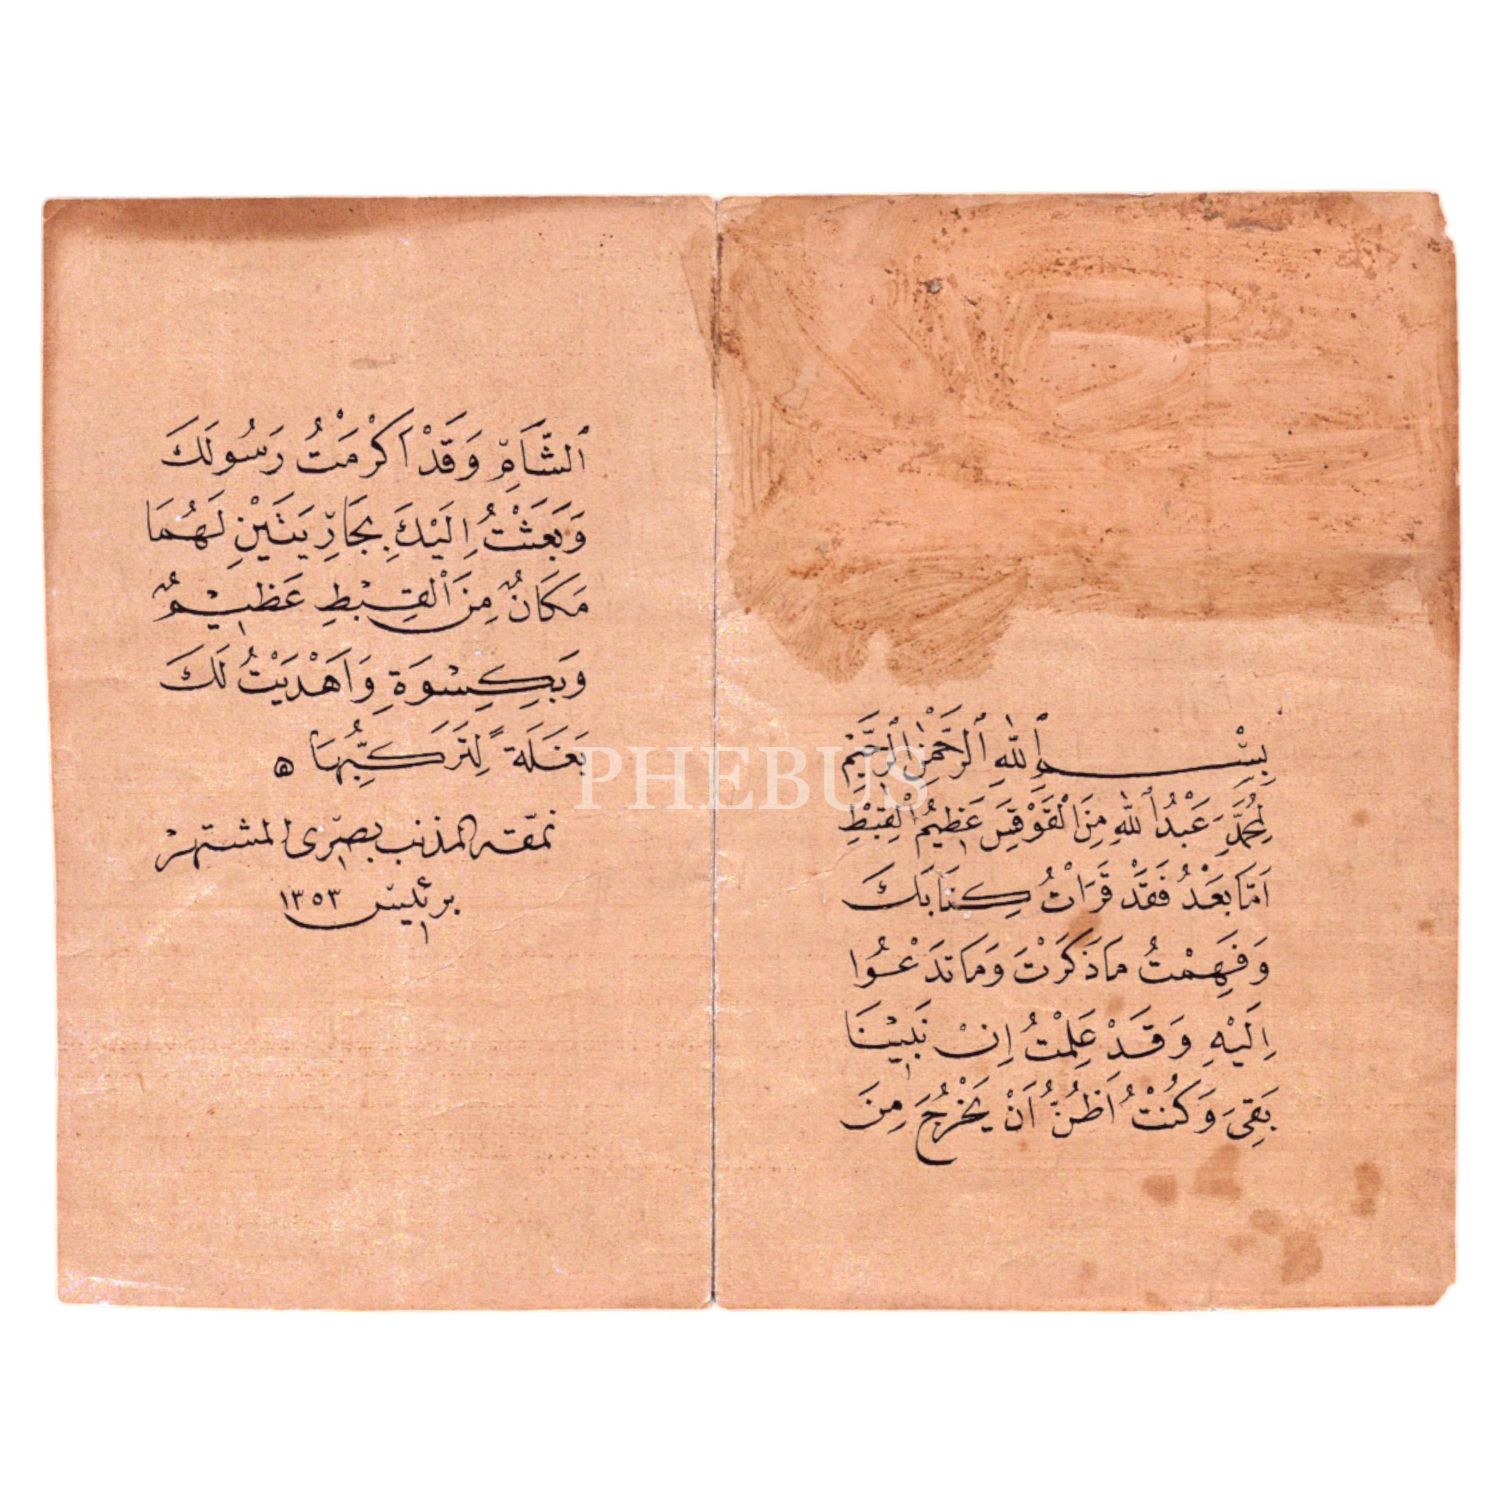 بِسْمِ اللّٰهِ الرَّحْمٰنِ الرَّحِيمِ
لِمُحَمَّدِ عَبْدُ اللّٰهِ مِنَ الْقَوْقِسِ عَظِيمُ الْقِبْطِ
اَمَّا بَعْدُ فَقَدْ قَرَاْتُ كِتَابَكَ
وَفَهِمْتُ مَا ذَكَرْتَ وَمَا تَدَعْعُوا
اِلَيْهِ وَقَدْ عَلِمْتُ اِنْ نَبِيْنَا
بَقِىَ وَكُنْتُ اَظُنُّ اَنْ يَخْرُجَ مِنَ
الشَّامِّ وَقَدْ اَكْرْمَتْتُ رَسُولَكَ
وَبَعَثْتُ اِلَيْكَ بِجَارِيَتَيْنِ لَهُمَا
مَكَانٌ مِنَ الْقِبْطِ عَظِيمٌ
وَبِكِسْوَةٍ وَاَهْدَيْتُ لَكَ
بَغَلَةً لِتَرَكَبِّهَا ه
نمقه المذنب بصرى المشتهر
برئيس ١٣٥٣
PHEBUS